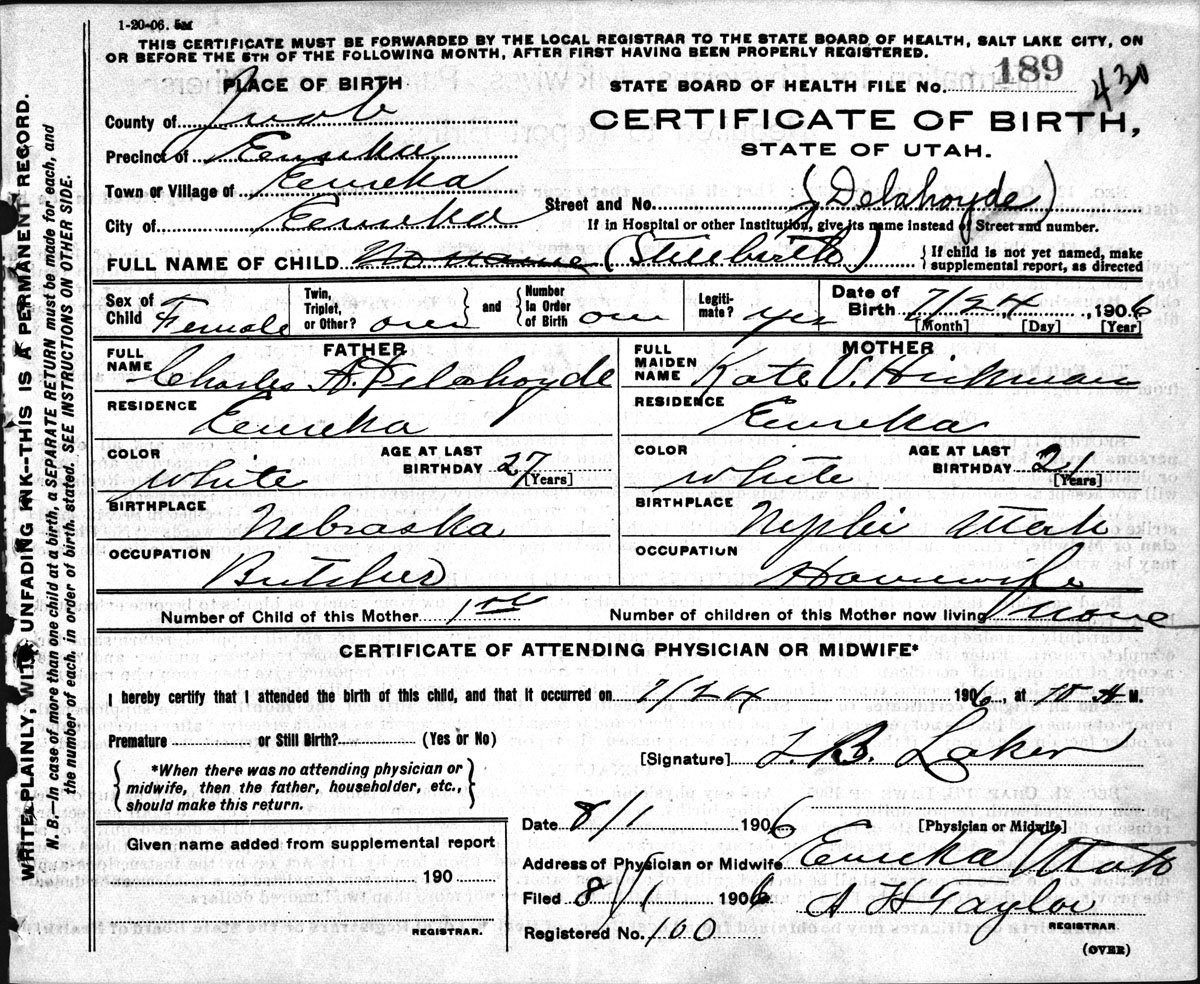 1-20-06. 5M
THIS CERTIFICATE MUST BE FORWARDED BY THE LOCAL REGISTRAR TO THE STATE BOARD OF HEALTH, SALT LAKE CITY, ON
OR BEFORE THE 5TH OF THE FOLLOWING MONTH, AFTER FIRST HAVING BEEN PROPERLY REGISTERED.
PLACE OF BIRTH
STATE BOARD OF HEALTH FILE No. 189
430
County of Juab
CERTIFICATE OF BIRTH,
Precinct of Eureka
STATE OF UTAH.
Town or Village of Eureka
Street and No. (Delahoyde)
City of Eureka
If in Hospital or other Institution, give its name instead of Street and number.
FULL NAME OF CHILD No name (Stillbirth)
{If child is not yet named, make
supplemental report, as directed
Sex of Child Female
Twin, Triplet, or Other? one
and {Number in Order of Birth one
Legiti-mate? yes
Date of Birth 7/24, 1906
[Month] [Day] [Year]
FATHER
FULL NAME Charles A. Delahoyde
RESIDENCE Eureka
COLOR White
AGE AT LAST BIRTHDAY 27 [Years]
BIRTHPLACE Nebraska
OCCUPATION Butcher
MOTHER
FULL MAIDEN NAME Kate V. Hickman
RESIDENCE Eureka
COLOR White
AGE AT LAST BIRTHDAY 21 [Years]
BIRTHPLACE Nephi Utah
OCCUPATION Housewife
Number of Child of this Mother 1st
Number of children of this Mother now living None
CERTIFICATE OF ATTENDING PHYSICIAN OR MIDWIFE*
I hereby certify that I attended the birth of this child, and that it occurred on 7/24 1906, at A M.
Premature or Still Birth? (Yes or No)
[Signature]
{*When there was no attending physician or
midwife, then the father, householder, etc.,
should make this return.}
Date 8/1 1906
[Physician or Midwife]
Given name added from supplemental report
190
REGISTRAR.
Address of Physician or Midwife Eureka Utah
Filed 8/1 1906 A H Taylor
REGISTRAR
Registered No. 100
(OVER)
WRITE PLAINLY, WITH UNFADING INK—THIS IS A PERMANENT RECORD.
N. B—In case of more than one child at a birth, a SEPARATE RETURN must be made for each, and
the number of each, in order of birth, stated. SEE INSTRUCTIONS ON OTHER SIDE.